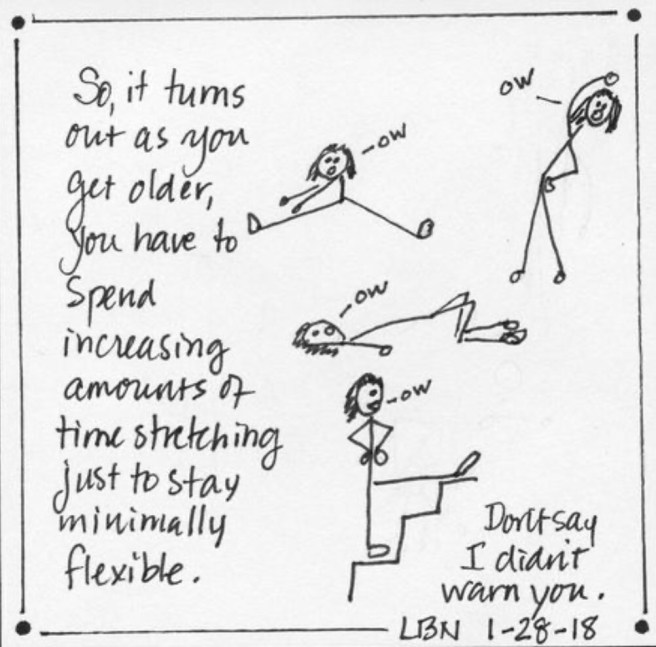 So, it turns
out as you
get older,
you have to
spend
increasing
amounts of
time stretching
just to stay
minimally
flexible.
ow
ow
ow
ow
Don't say
I didn't
warn you.
LBN 1-28-18